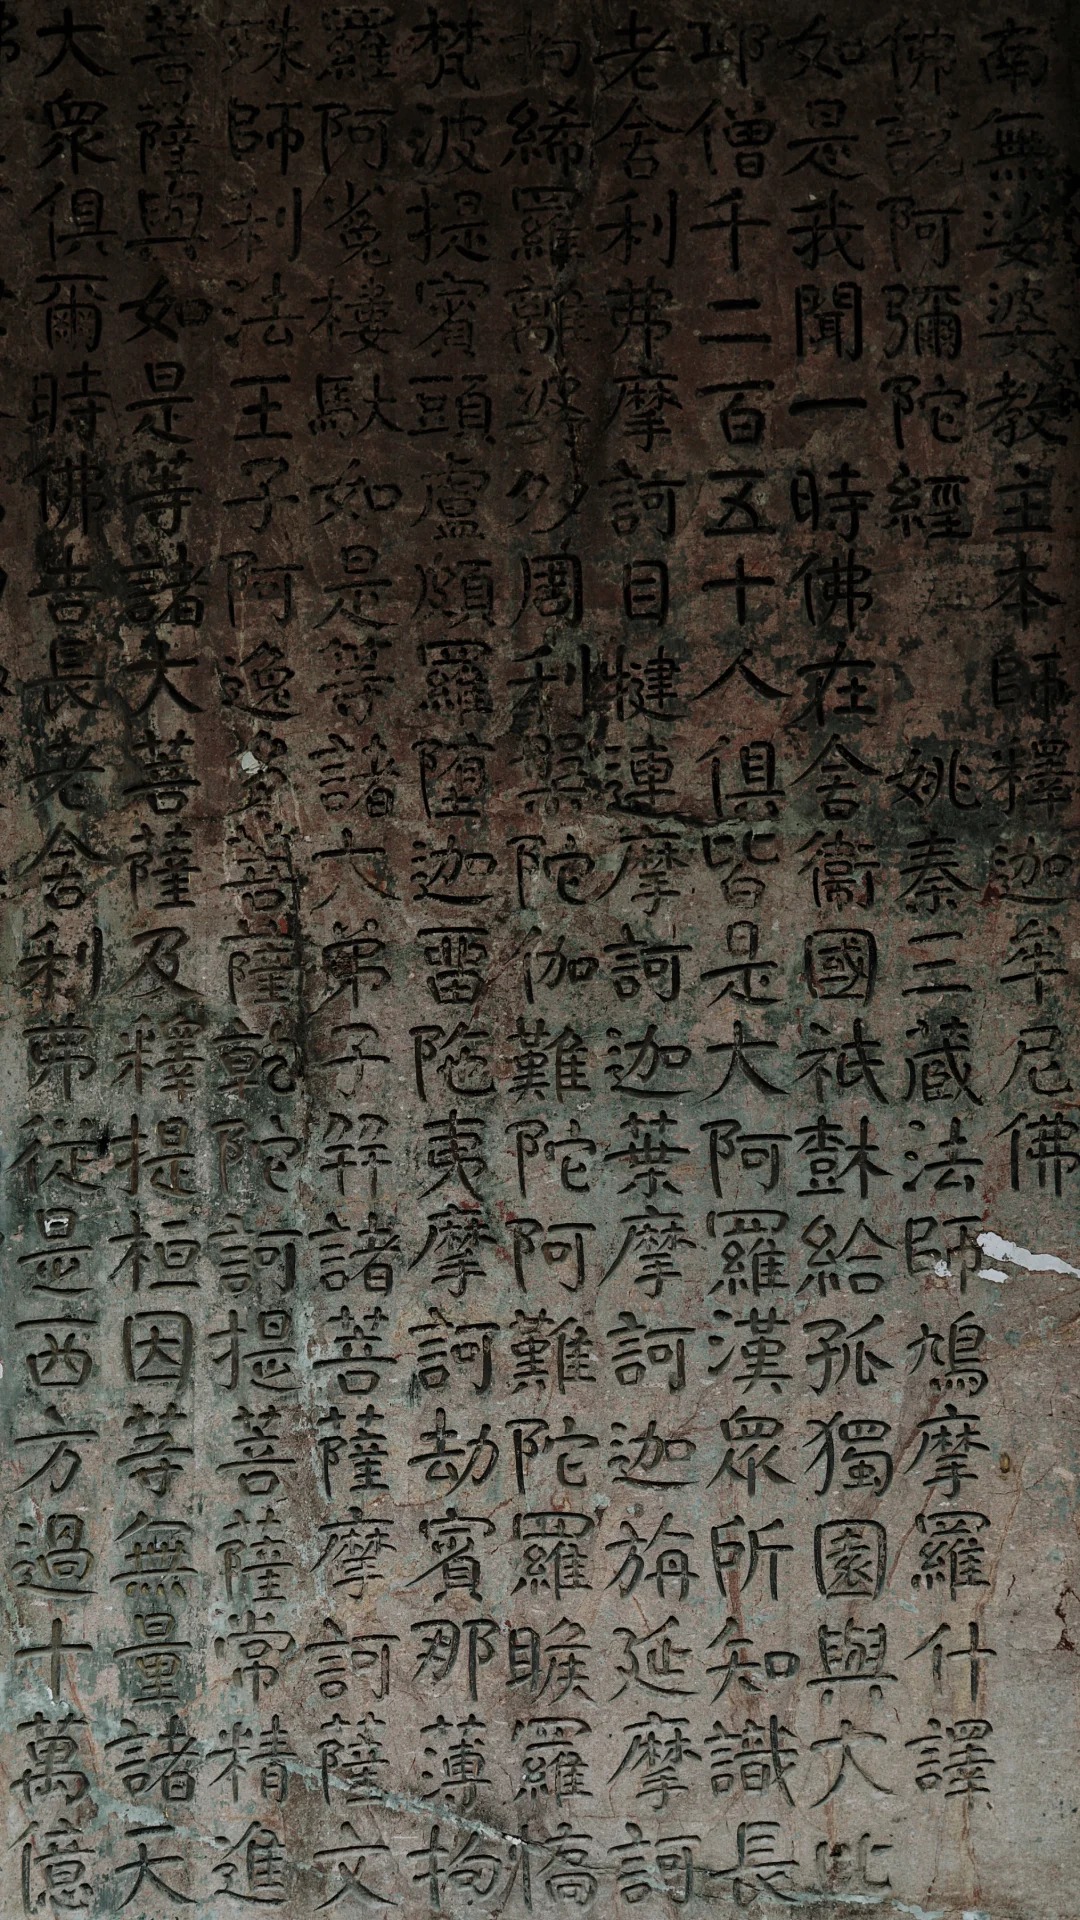 南無娑婆教主本師釋迦牟尼佛
佛說阿彌陀經 姚秦三藏法師鳩摩羅什譯
如是我聞一時佛在舍衞國祇樹給孤獨園與大比
邱僧千二百五十人俱皆是大阿羅漢眾所知識長
老舍利弗摩訶目犍連摩訶迦葉摩訶迦旃延摩訶
拘絺羅離婆多周利槃陀伽難陀阿難陀羅睺羅憍
梵波提賓頭盧頗羅堕迦畱陁夷摩訶劫賓那薄拘
羅阿㝹樓馱如是等諸大弟子并諸菩薩摩訶薩文
殊師利法王子阿逸多菩薩乾陀訶提菩薩常精進
菩薩與如是等諸大菩薩及釋提桓因等無量諸天
大眾俱爾時佛告長老舍利弗從是西方過十萬億